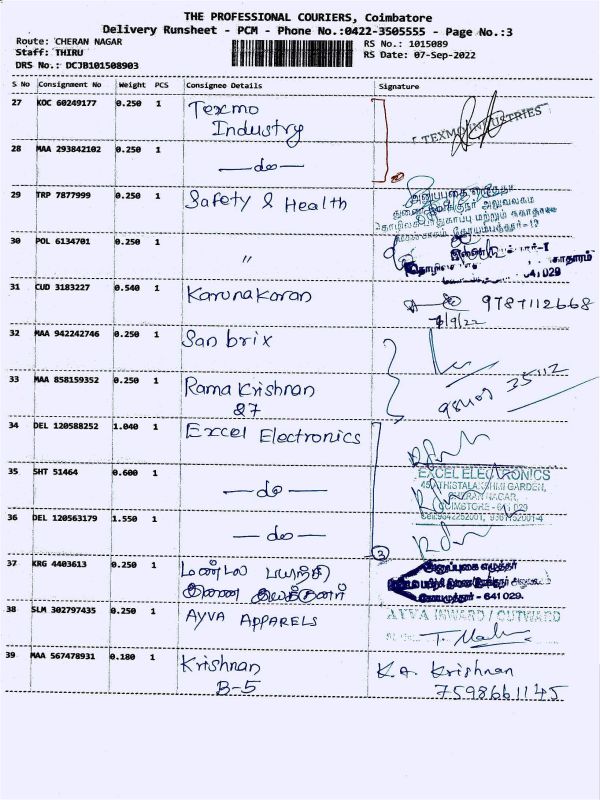 THE PROFESSIONAL COURIERS, Coimbatore
Delivery Runsheet - PCM - Phone No.:0422-3505555 - Page No.:3
Route: CHERAN NAGAR
Staff: THIRU
DRS No.: DCJB101508903
RS No.: 1015089
RS Date: 07-Sep-2022
S No Consignment No Weight PCS Consignee Details Signature
27 KOC 60249177 0.250 1 Texmo
Industry
TEXMO INDUSTRIES
28 MAA 293842102 0.250 1 —do—
29 TRP 7877999 0.250 1 Safety & Health
30 POL 6134701 0.250 1 "
641 029
31 CUD 3183227 0.540 1 Karunakaran 9787112668
7/9/22
32 MAA 942242746 0.250 1 San brix
33 MAA 858159352 0.250 1 Rama Krishnan
87
34 DEL 120588252 1.040 1 Excel Electronics
35 SHT 51464 0.600 1 —do—
EXCEL ELECTRONICS
CHERAN NAGAR,
COIMBTORE - 641 029
36 DEL 120563179 1.550 1 —do—
3
37 KRG 4403613 0.250 1 மண்டல பயிற்சி
இணை இயக்குனர்
அனுப்புகை எழுத்தர்
641 029.
38 SLM 302797435 0.250 1 AYVA APPARELS
AYVA INWARD / OUTWARD
39 MAA 567478931 0.180 1 Krishnan
B-5
K.A. Krishnan
7598661145